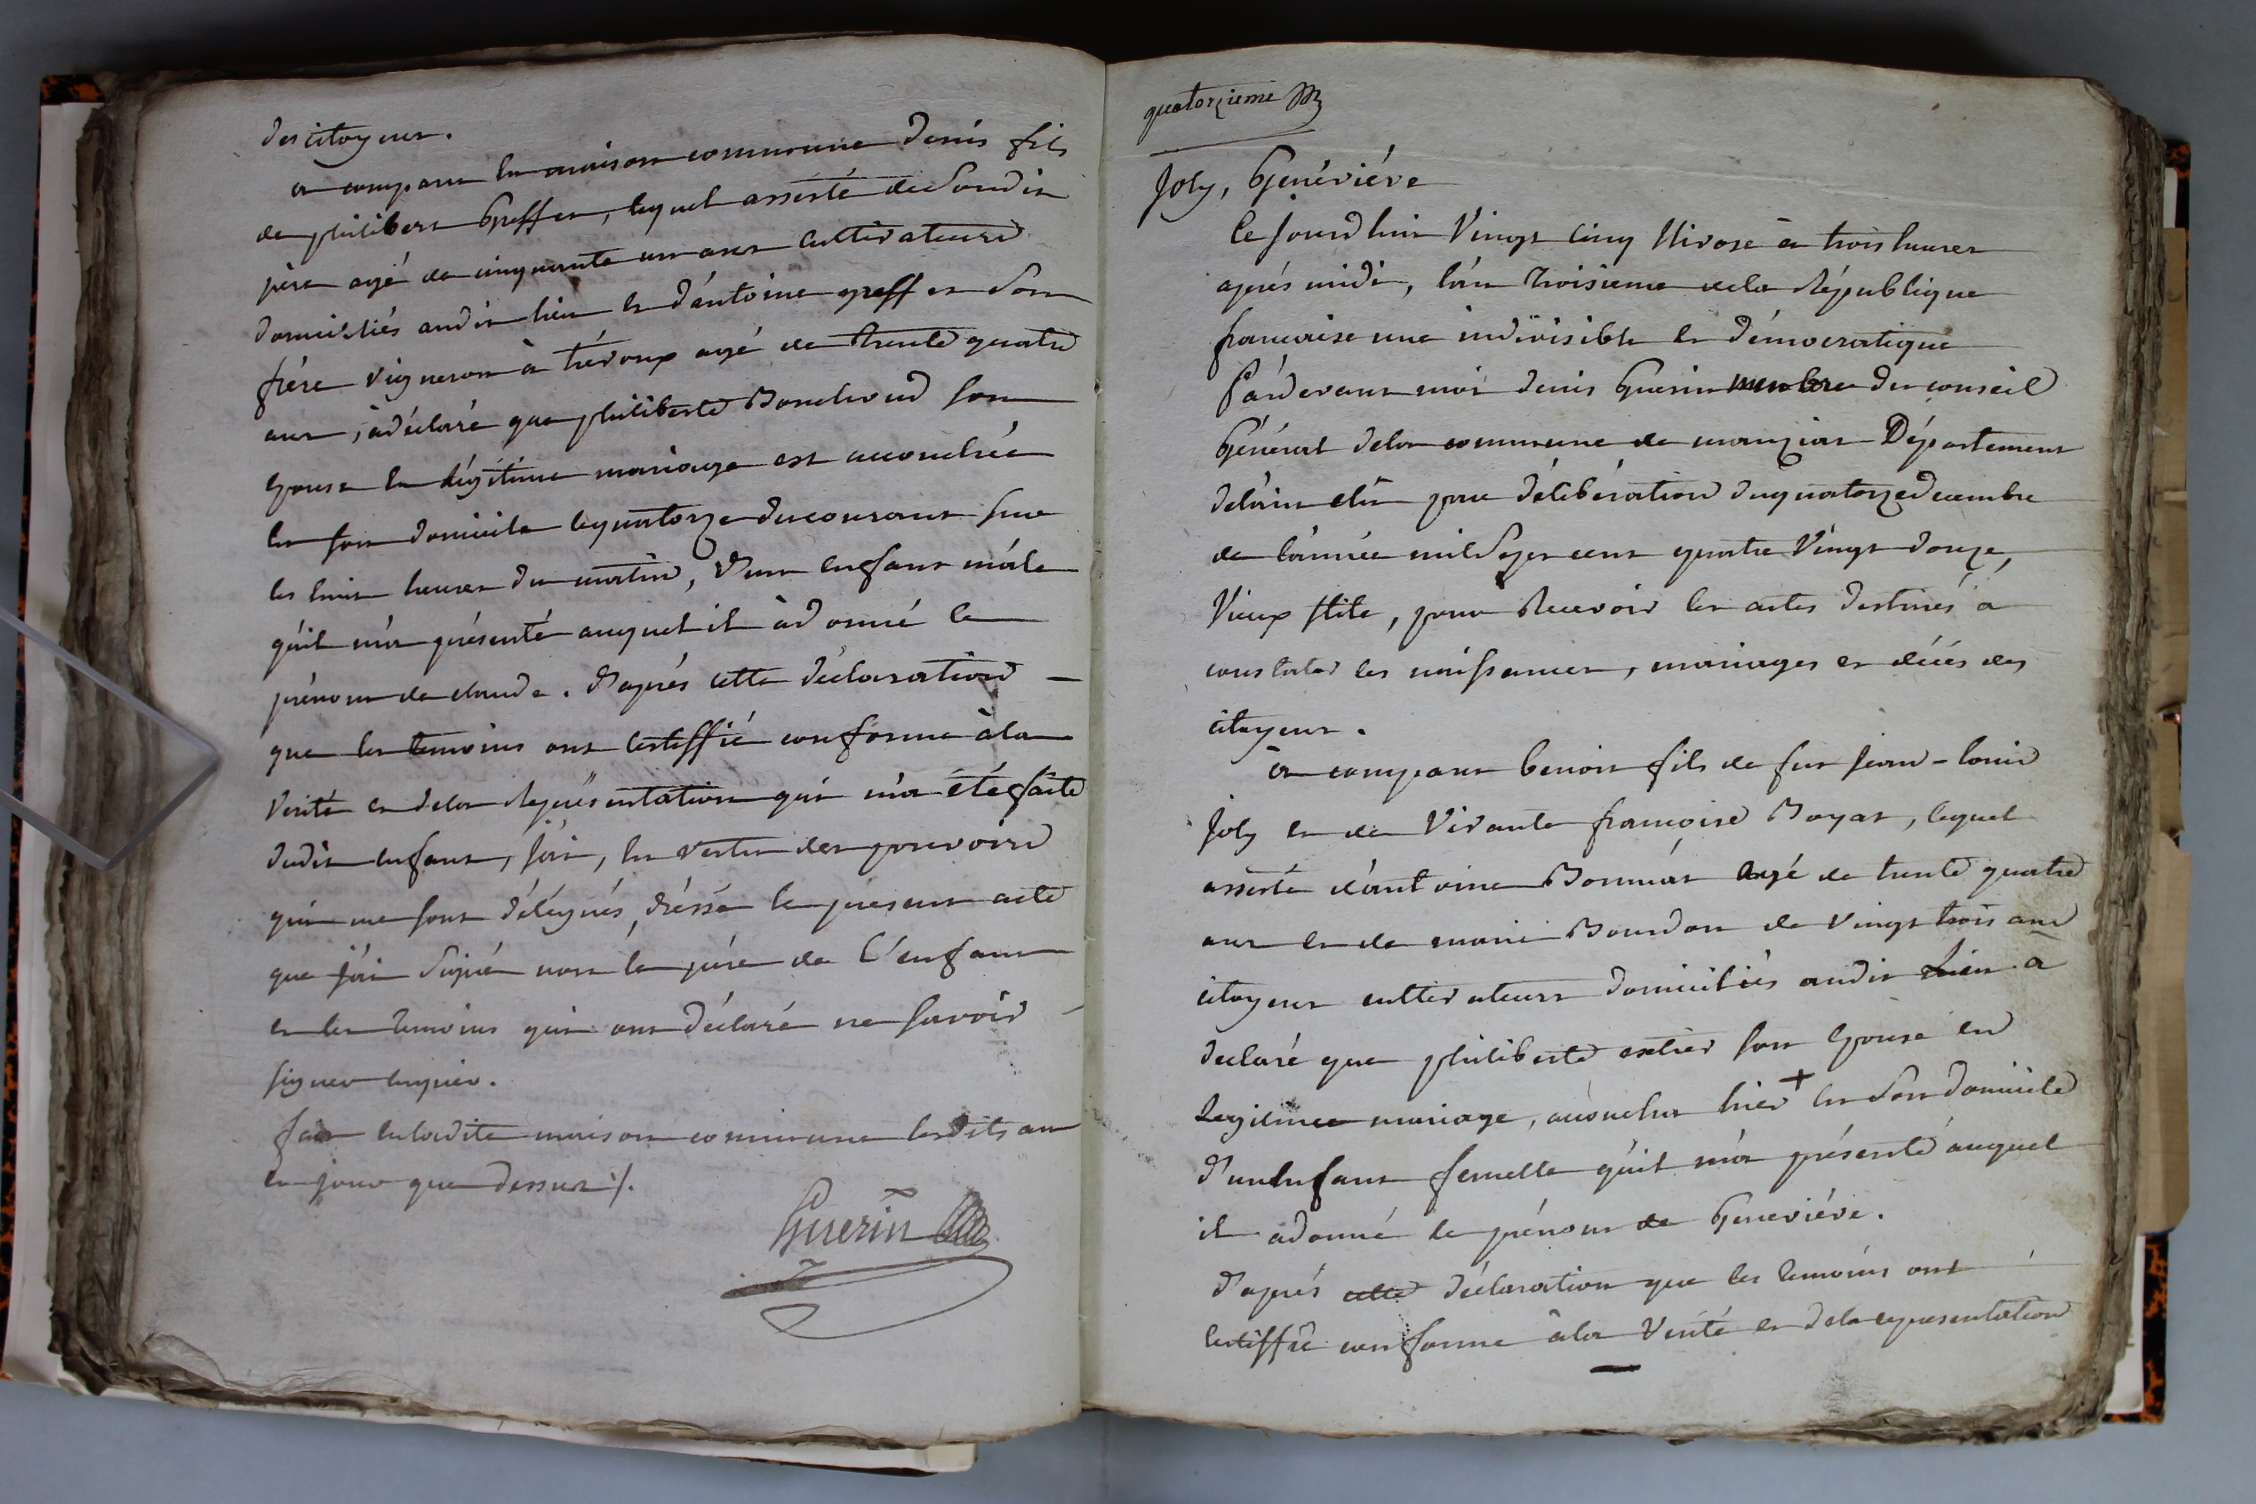 des citoyens.
a comparu en maison commune denis fils
de philibert Greffet, lequel assisté de Sondit
père agé de cinquante un ans cultivateurs
domiciliés audit lieu et d'antoine greffet Son
frére vigneron à trévoux agé de trente quatre
ans, à déclaré que philiberte son
Epouse en légitime mariage est accouchée
en son domicile le quatorze du courant sur
les huit heures du matin, d'un enfant mâle
qu'il m'a présenté auquel il à donné le
prénom de claude. D'aprés cette déclaration
que les temoins ont certiffié conforme à la
Verité et de la Représentation qui m'a été faite
dudit enfant, j'ai, en vertu des pouvoirs
qui me sont délégués, dréssé le present acte
que j'ai Signé non le pére de l'enfant
et les temoins qui ont déclaré ne savoir
signer enquis.
fait en la dite maison commune lesdits an
et jour que dessus ./.
Guerin
quatorzieme
Joly, Généviéve
Ce jourd'hui Vingt cinq Nivose à trois heures
aprés midi, l'an troisieme de la République
francaise une indivisible et démocratique
Pardevant moi denis Guerin membre du conseil
Général de la commune de Département
de l'ain élû par délibération du quatorze decembre
de l'année mil Sept cent quatre Vingt douze,
Vieux stile, pour Recevoir les actes destinés a
constater les naissances, mariages et décés des
citoyens.
a comparu benoit fils de feu jean-louis
Joly et de Vivante francoise Boyat, lequel
assisté d'antoine agé de trente quatre
ans et de marie Bourdon de Vingt trois ans
citoyens cultivateurs domiciliés audit Lieu a
declaré que philiberte son Epouse en
Legitime mariage, accoucha hier + en Son domicile
d'un Enfant femelle qu'il m'a présenté auquel
il a donné le prénom de Geneviéve.
D'aprés cette déclaration que les temoins ont
certiffié conforme à la Verité et de la representation